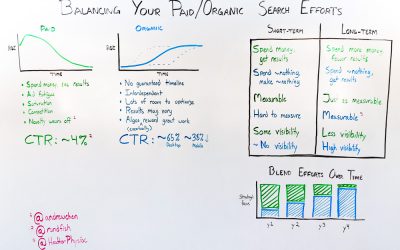 BALANCING YOUR PAID/ORGANIC SEARCH EFFORTS
PAID
TIME
• Spend money, see results
• Ad fatigue
• Saturation
• Competition
• Novelty wears off
CTR: ~4%²
ORGANIC
TIME
• No guaranteed timeline
• Interdependent
• Lots of room to optimize
• Results may vary
• Algos reward great work
(eventually)
CTR: ~65% ~38%
Desktop Mobile
SHORT-TERM LONG-TERM
Spend money, get results
Spend more money, fewer results
Spend ~nothing, make ~nothing
Spend ~nothing, get results
Measurable
Just as measurable
Hard to measure
Measurable
Some visibility
Less visibility
~ No visibility
High visibility
BLEND EFFORTS OVER TIME
Strategic
y1 y2 y3 y4
@randfish
@HeatherPhysioc